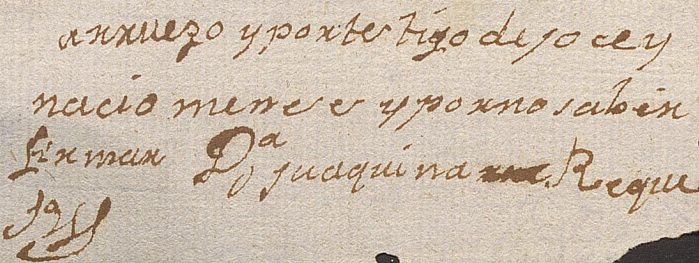 arruezo y por testigo de joce y
nacio menese y por no saber
firmar Dª juaquina Reque